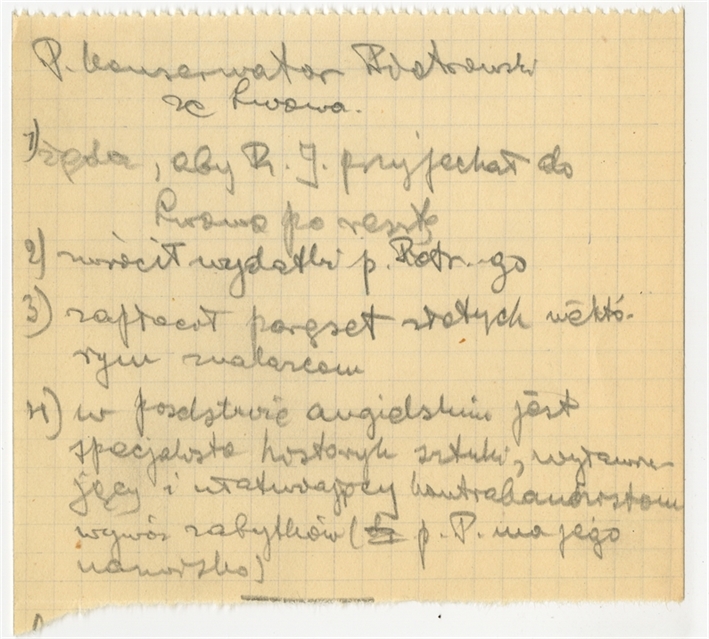 P. Konserwator Piotrowski
ze Lwowa.
1) żąda, aby R. J. przyjechał do
Lwowa po resztę
2) zwrócił wydatki p. Piotr-go
3) zapłacił paręset złotych niektó-
rym znalazcom
4) w poselstwie angielskim jest
specjalista historyk sztuki,
jący i ułatwiający kontrabandzistom
wywóz zabytków ( p. P. ma jego
nazwisko)